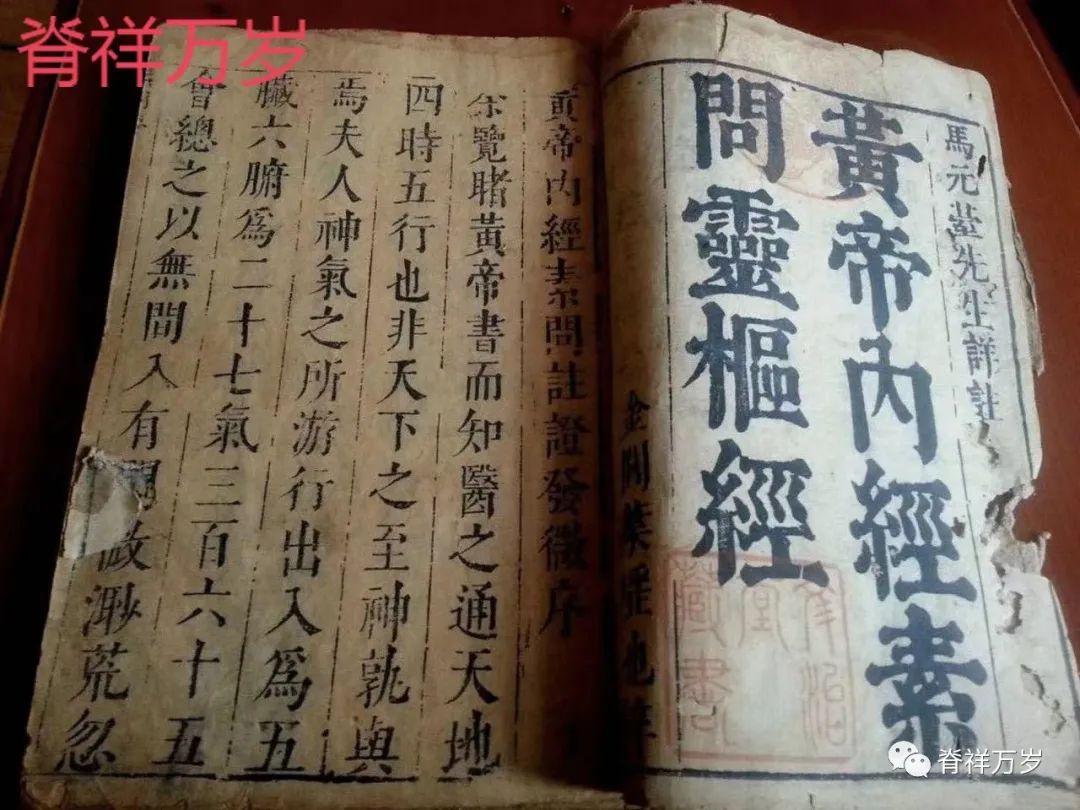 脊祥万岁
馬元臺先生詳註
黃帝內經素
問靈樞經
藏書
黃帝內經素問註證發微序
余覽睹黃帝書而知醫之通天地
四時五行也非天下之至神孰與
焉夫人神氣之所游行出入為五
臟六腑為二十七氣三百六十五
會總之以無間入有間故渺荒忽
脊祥万岁